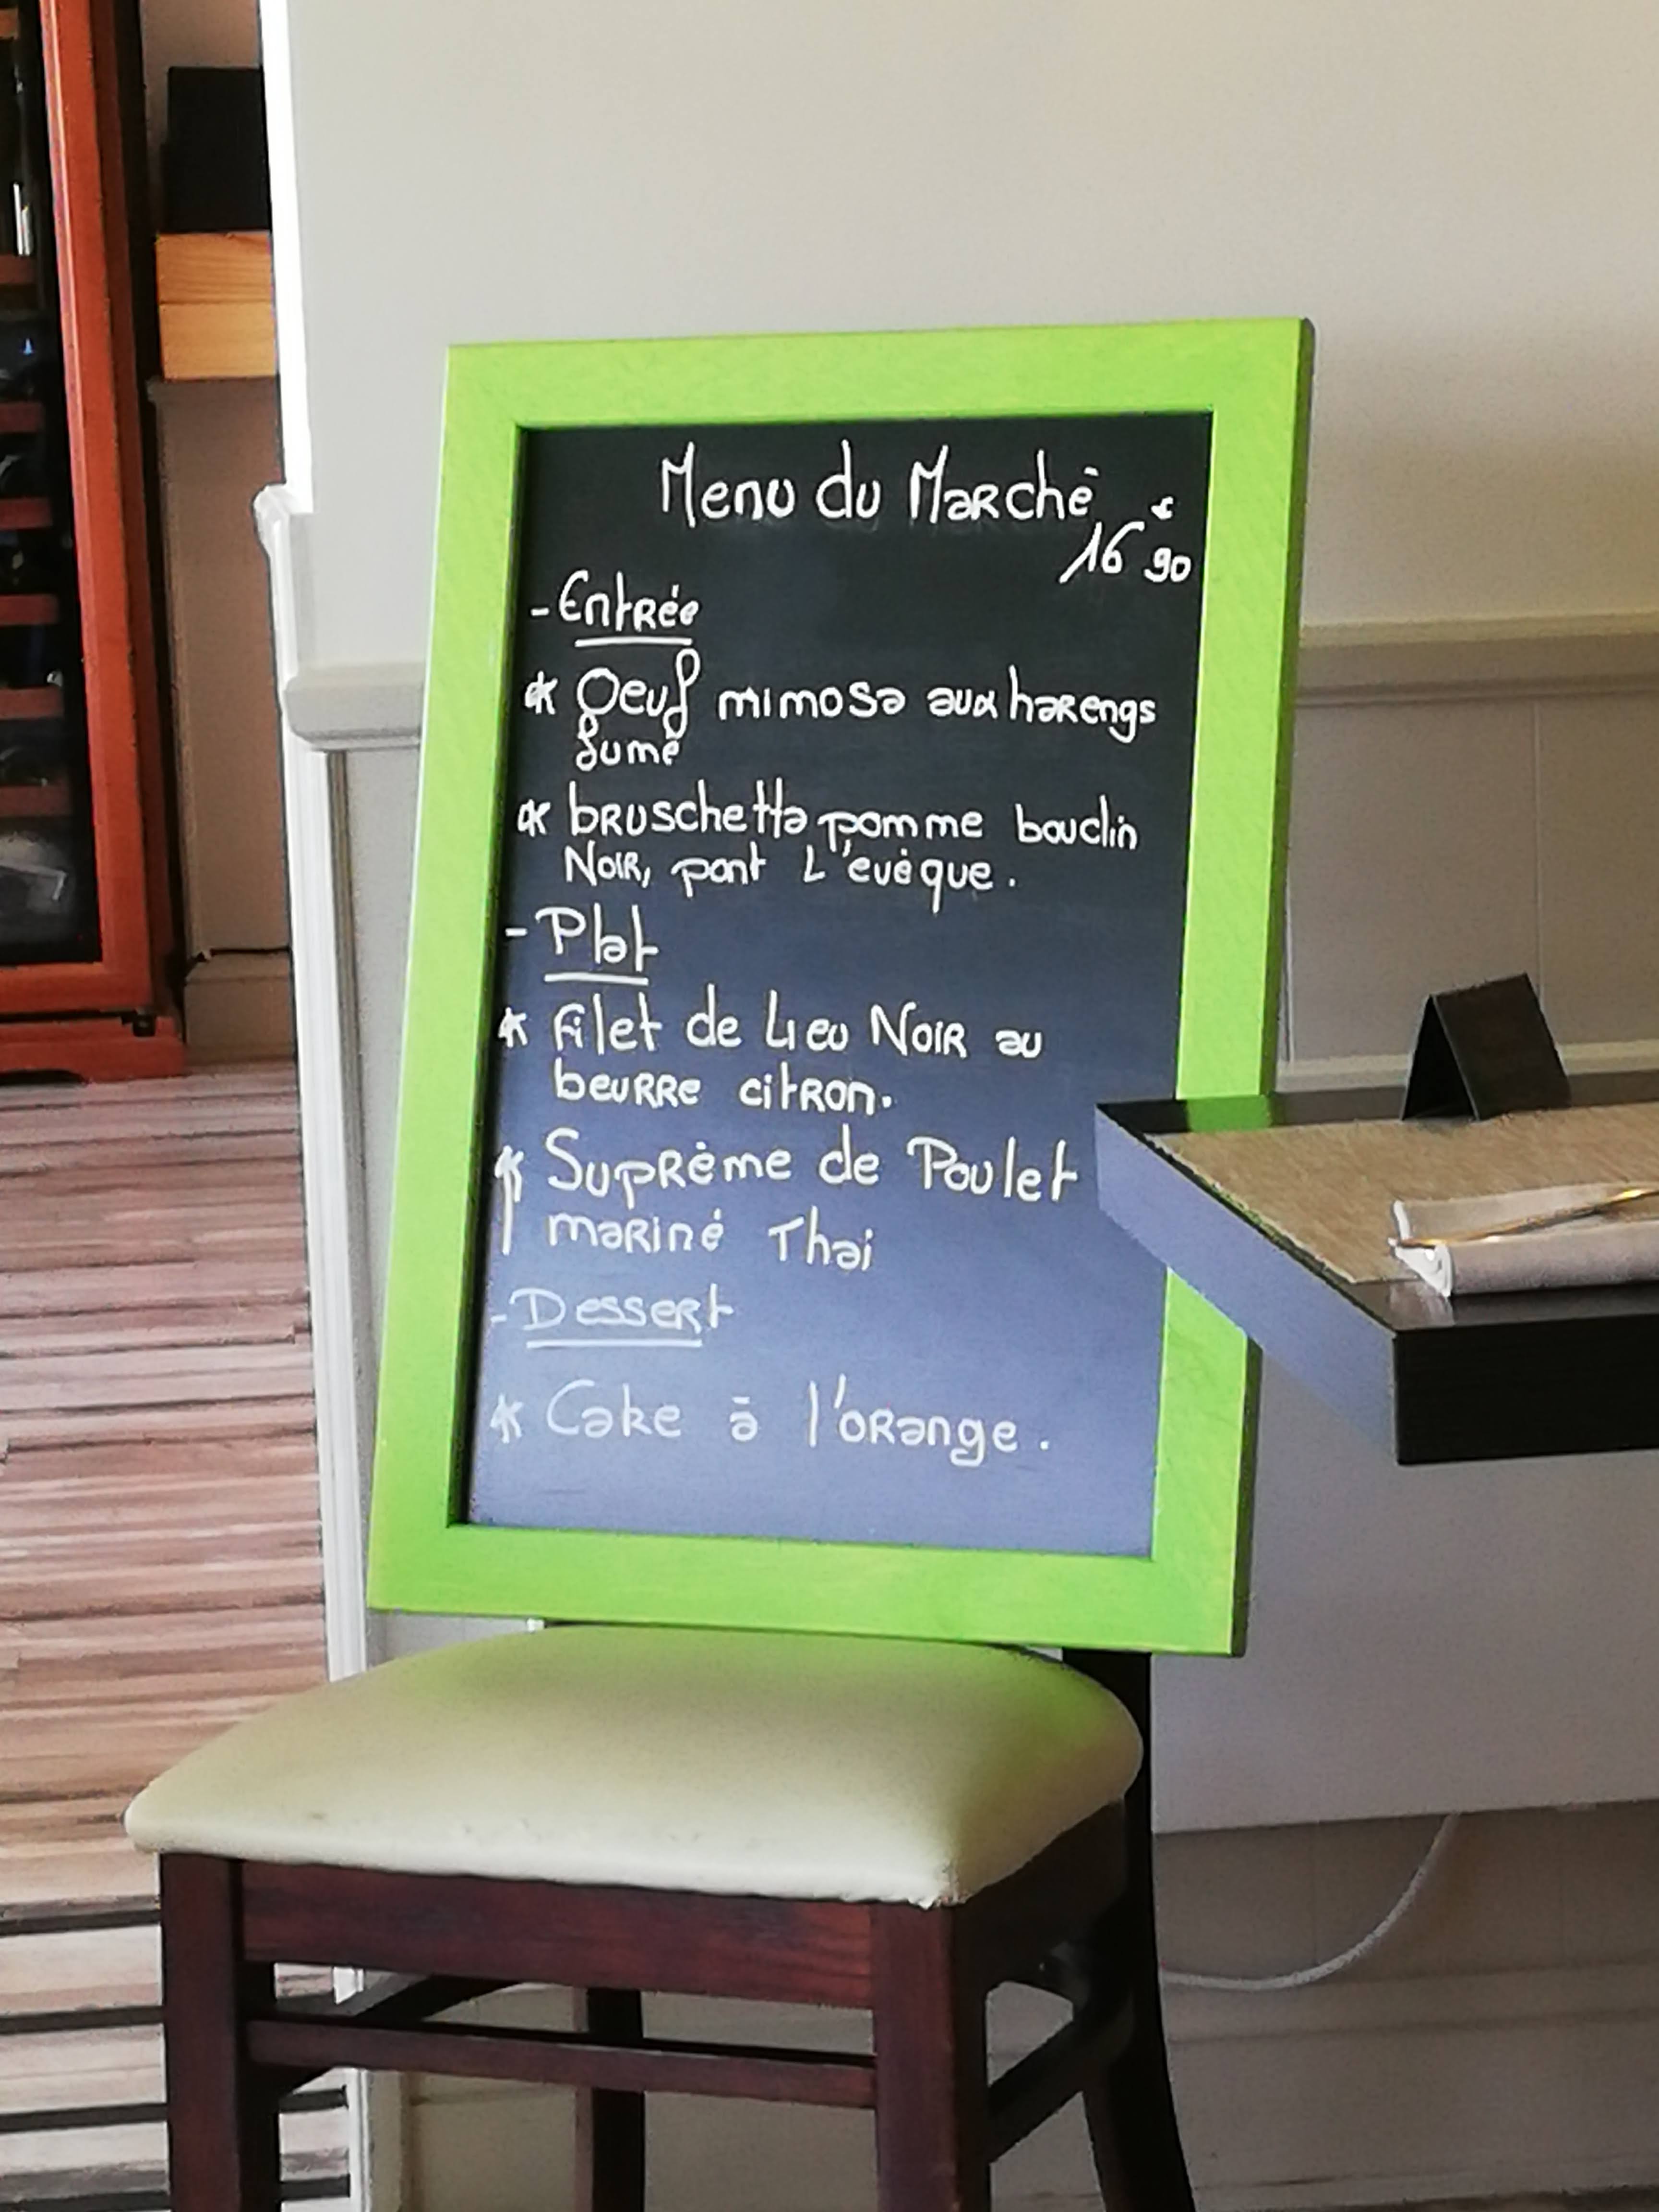 Menu du Marché
16€90
- Entrée
* Oeuf mimosa aux harengs
fumé
* bruschetta pomme boudin
Noir, pont L'evêque.
- Plat
* Filet de Lieu Noir au
beurre citron.
* Suprême de Poulet
mariné Thai
- Dessert
* Cake à l'orange.